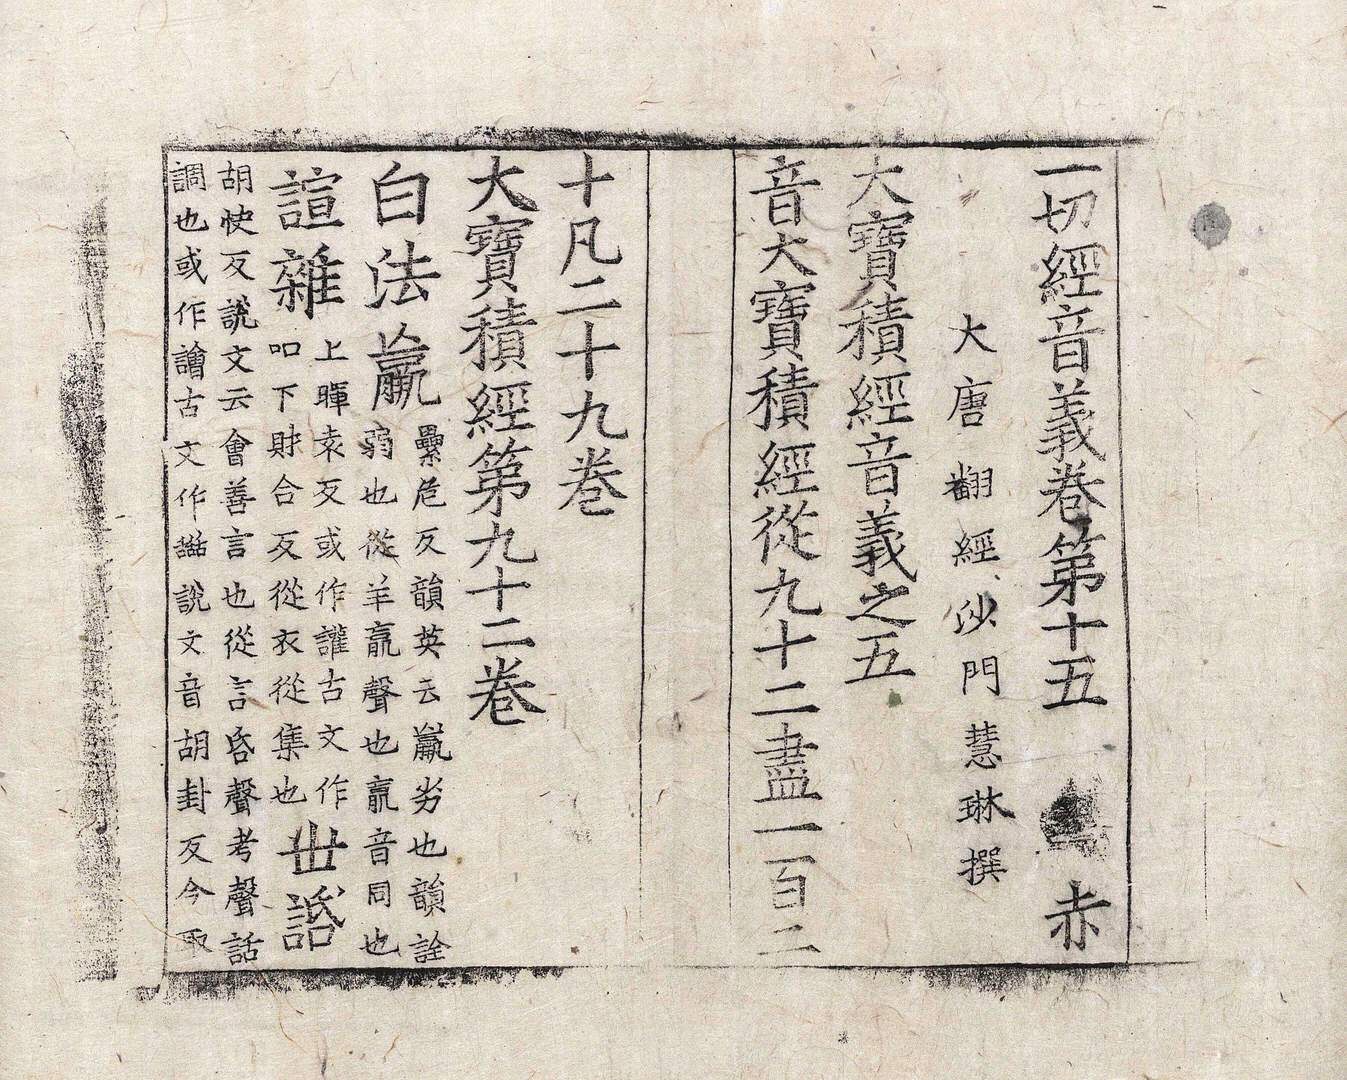 一切經音義卷第十五 赤
大唐翻經沙門慧琳撰
大寶積經音義之五
音大寶積經從九十二盡一百二
十凡二十九卷
大寶積經第九十二卷
白法羸
纍危反韻英云羸劣也韻詮
弱也從羊𣎆聲也𣎆音同也
諠雜
上暉袁反或作讙古文作
吅下財合反從衣從集也
世話
胡快反說文云會善言也從言𠯑聲考聲話
調也或作譮古文作𧨥說文音胡卦反今取